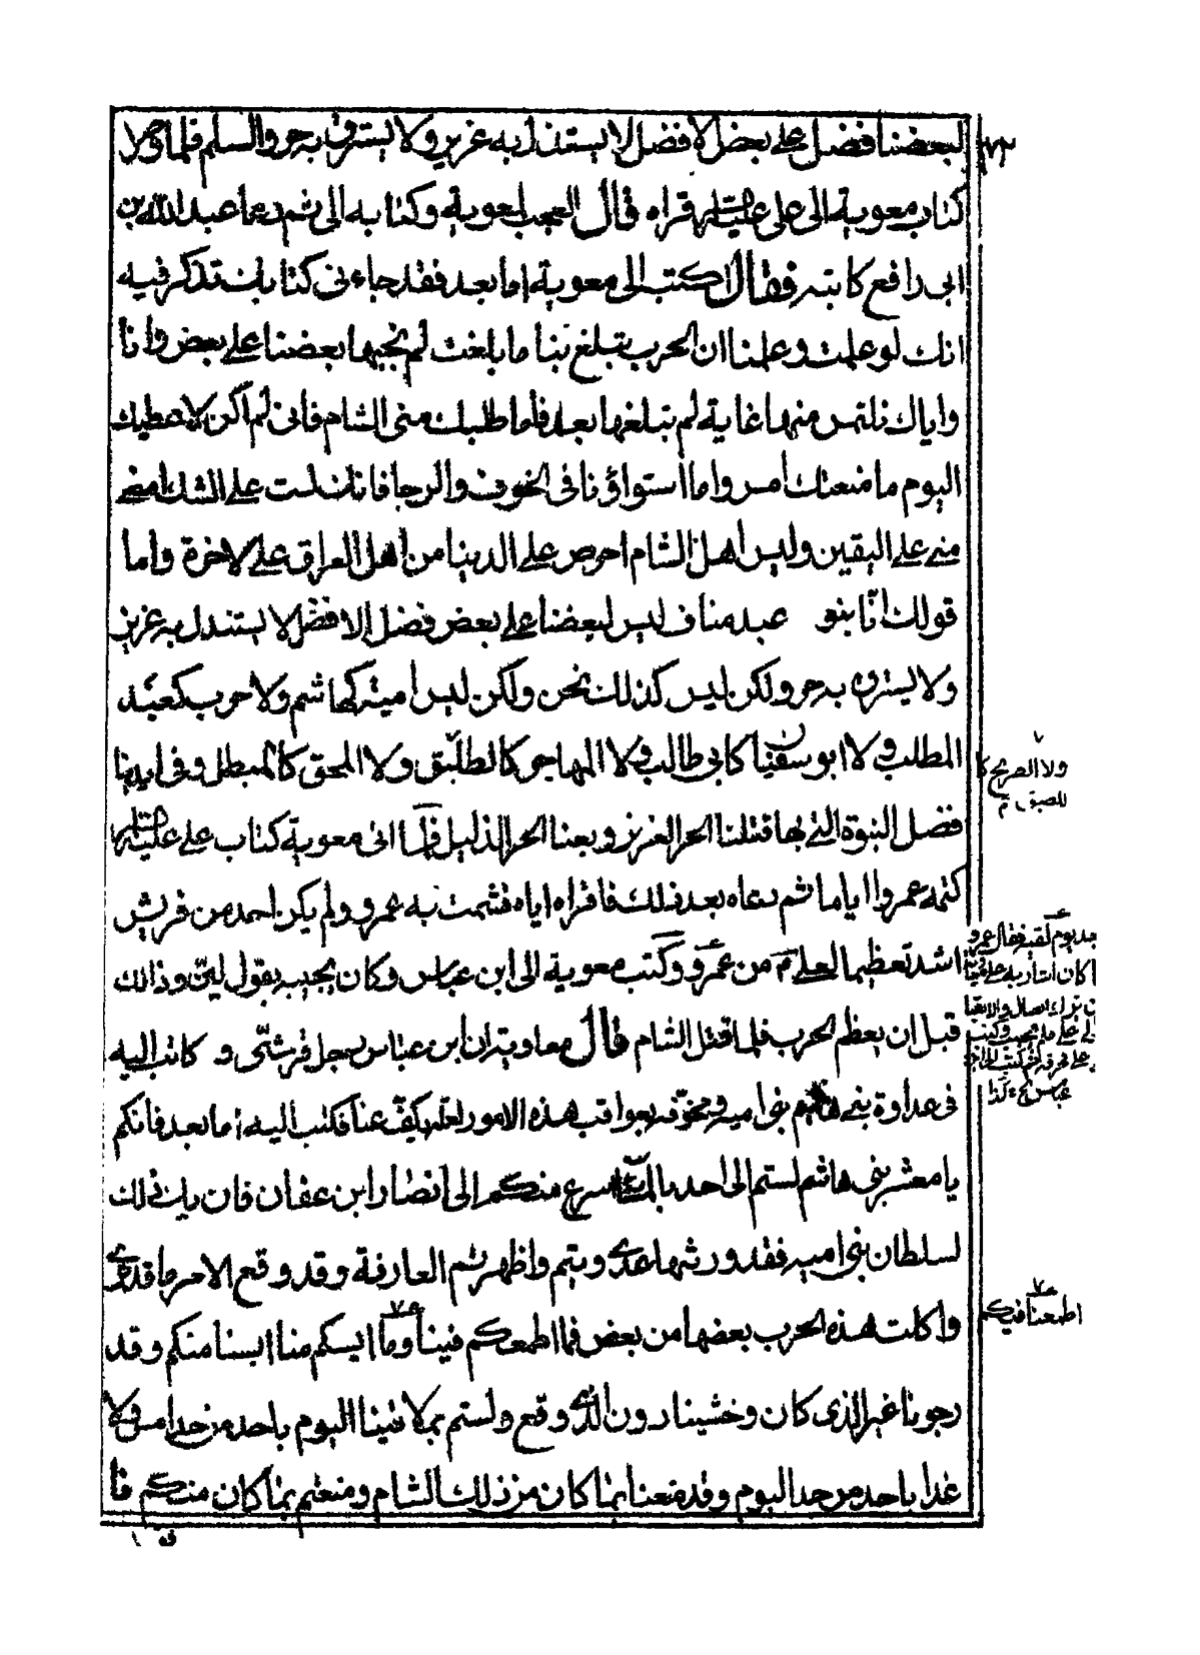 لبعضنا فضل على بعض الا فضل لا يستذل به عزيز ولا يسترق به حر والسلم فلما وصل
كتاب معوية الى على عليه السلام قراه قال العجب لمعوية وكتابه الى ثم دعا عبد الله بن
ابى رافع كاتبه فقال اكتب الى معوية اما بعد فقد جاءنى كتابك تذكر فيه
انك لو علمت وعلمنا ان الحرب تبلغ بنا ما بلغت لم يجبها بعضنا على بعض وانا
واياك نلتمس منها غاية لم تبلغها بعد فاما طلبك منى الشام فانى لم اكن لاعطيك
اليوم ما منعتك امس واما استواؤنا فى الخوف والرجا فانك لست على الشك امضى
منى على اليقين وليس اهل الشام احرص على الدنيا من اهل العراق على الاخرة واما
قولك انّا بنو عبد مناف ليس لبعضنا على بعض فضل الا فضل لا يستذل به عزيز
ولا يسترق به حر ولكن ليس كذلك نحن ولكن ليس امية كهاشم ولا حرب كعبد
المطلب ولا ابو سفيان كابى طالب ولا المهاجر كالطليق ولا المحق كالمبطل وفى ايدينا
فضل النبوة التى بها قتلنا الحر العزيز وبعنا الحر الذليل فلما اتى معوية كتاب على عليه السلام
كتمه عمروا اياما ثم دعاه بعد ذلك فاقراه اياه فشمت به عمرو ولم يكن احد من قريش
اشد تعظيما لعلى من عمرو وكتب معوية الى ابن عباس وكان يجيبه بقول لين وذلك
قبل ان يعظم الحرب فلما قتل الشام قال معاوية ان ابن عباس رجل قرشىّ و كاتب اليه
فى عداوة بنى هاشم بنى اميه ومخوّفه بعواقب هذه الامور لعله يكفّ عنا فكتب اليه اما بعد فانكم
يا معشر بنى هاشم لستم الى احد بالمساءة اسرع منكم الى انصار ابن عفان فان يك ذلك
لسلطان بنى اميه فقد ورثها عدى وتيم واظهرتم العارفة وقد وقع الامر ما قد ترى
واكلت هذه الحرب بعضها من بعض فما اطمعكم فينا وما ايسكم منا ايسنا منكم وقد
رجونا غير الذى كان وخشينا دون الذى وقع ولستم بملاقينا اليوم باحد من حد امس ولا
غدا باحد من حد اليوم وقد منعنا بما كان من ذلك الشام ومنعتم بما كان منكم فا
ولا الصريح كا
للصيق
بعد يوم لقيه فقال عمرو
اطمعنا فيكم